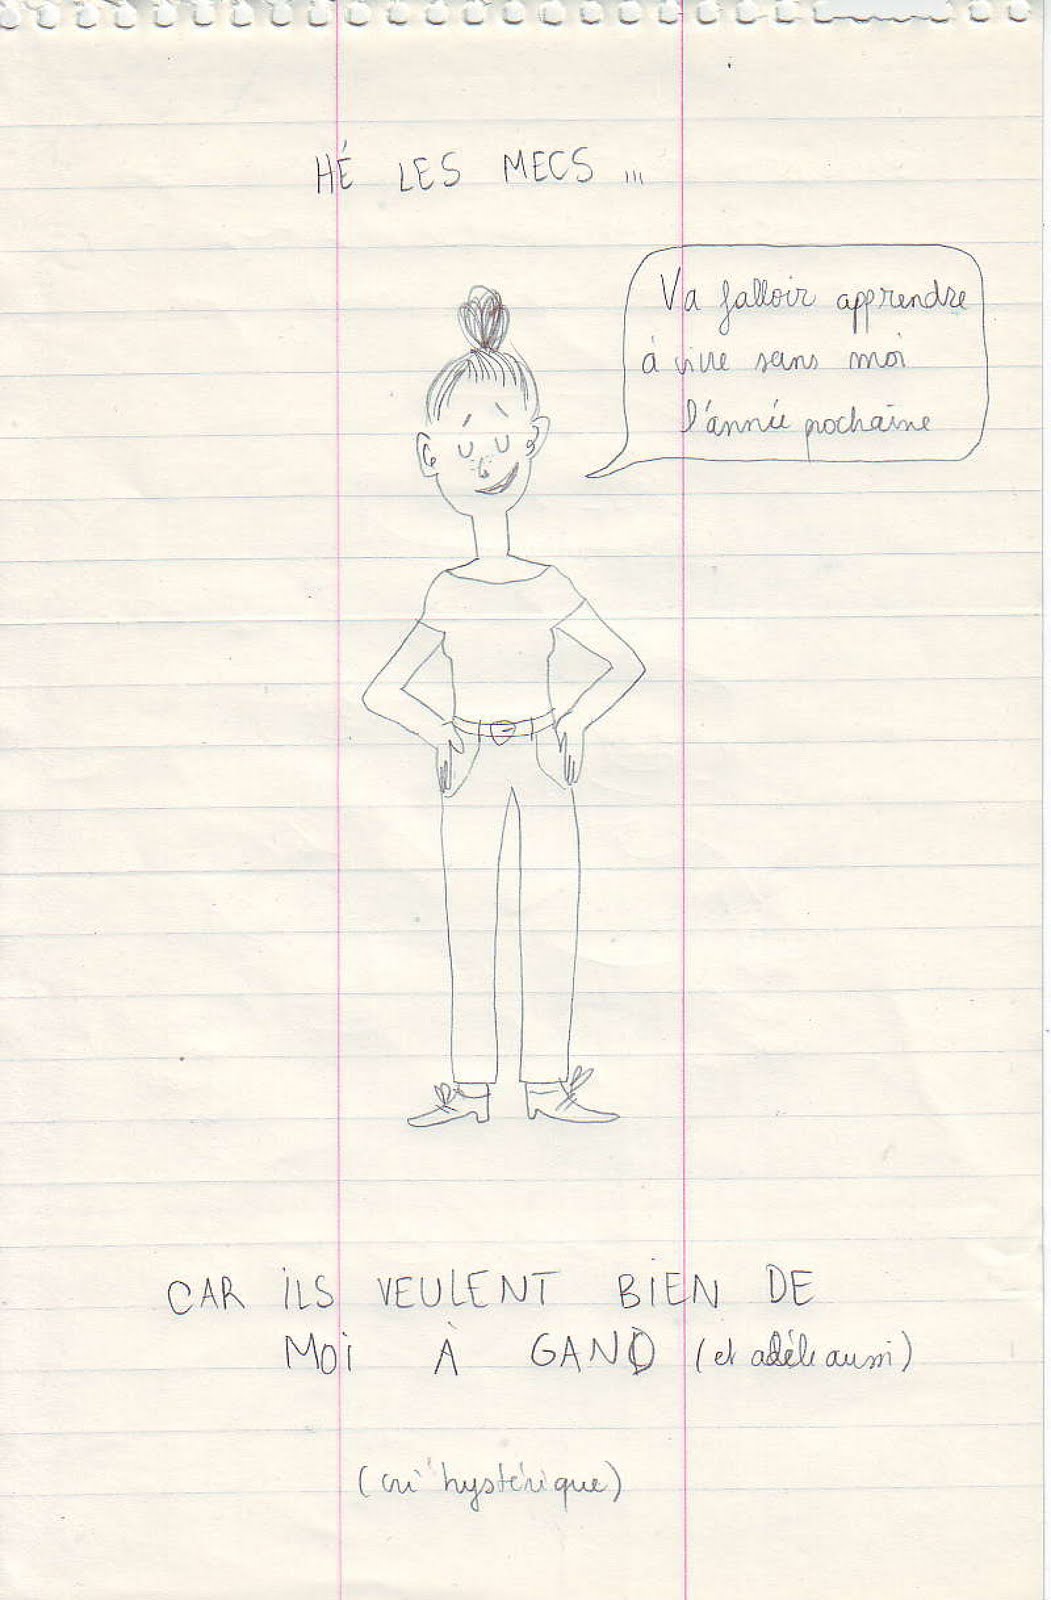 HÉ LES MECS ...
Va falloir apprendre
à vivre sans moi
l'année pochaine
CAR iLS VEULENT BiEN DE
MOi À GAND (et adèle aussi)
(cri hystérique)